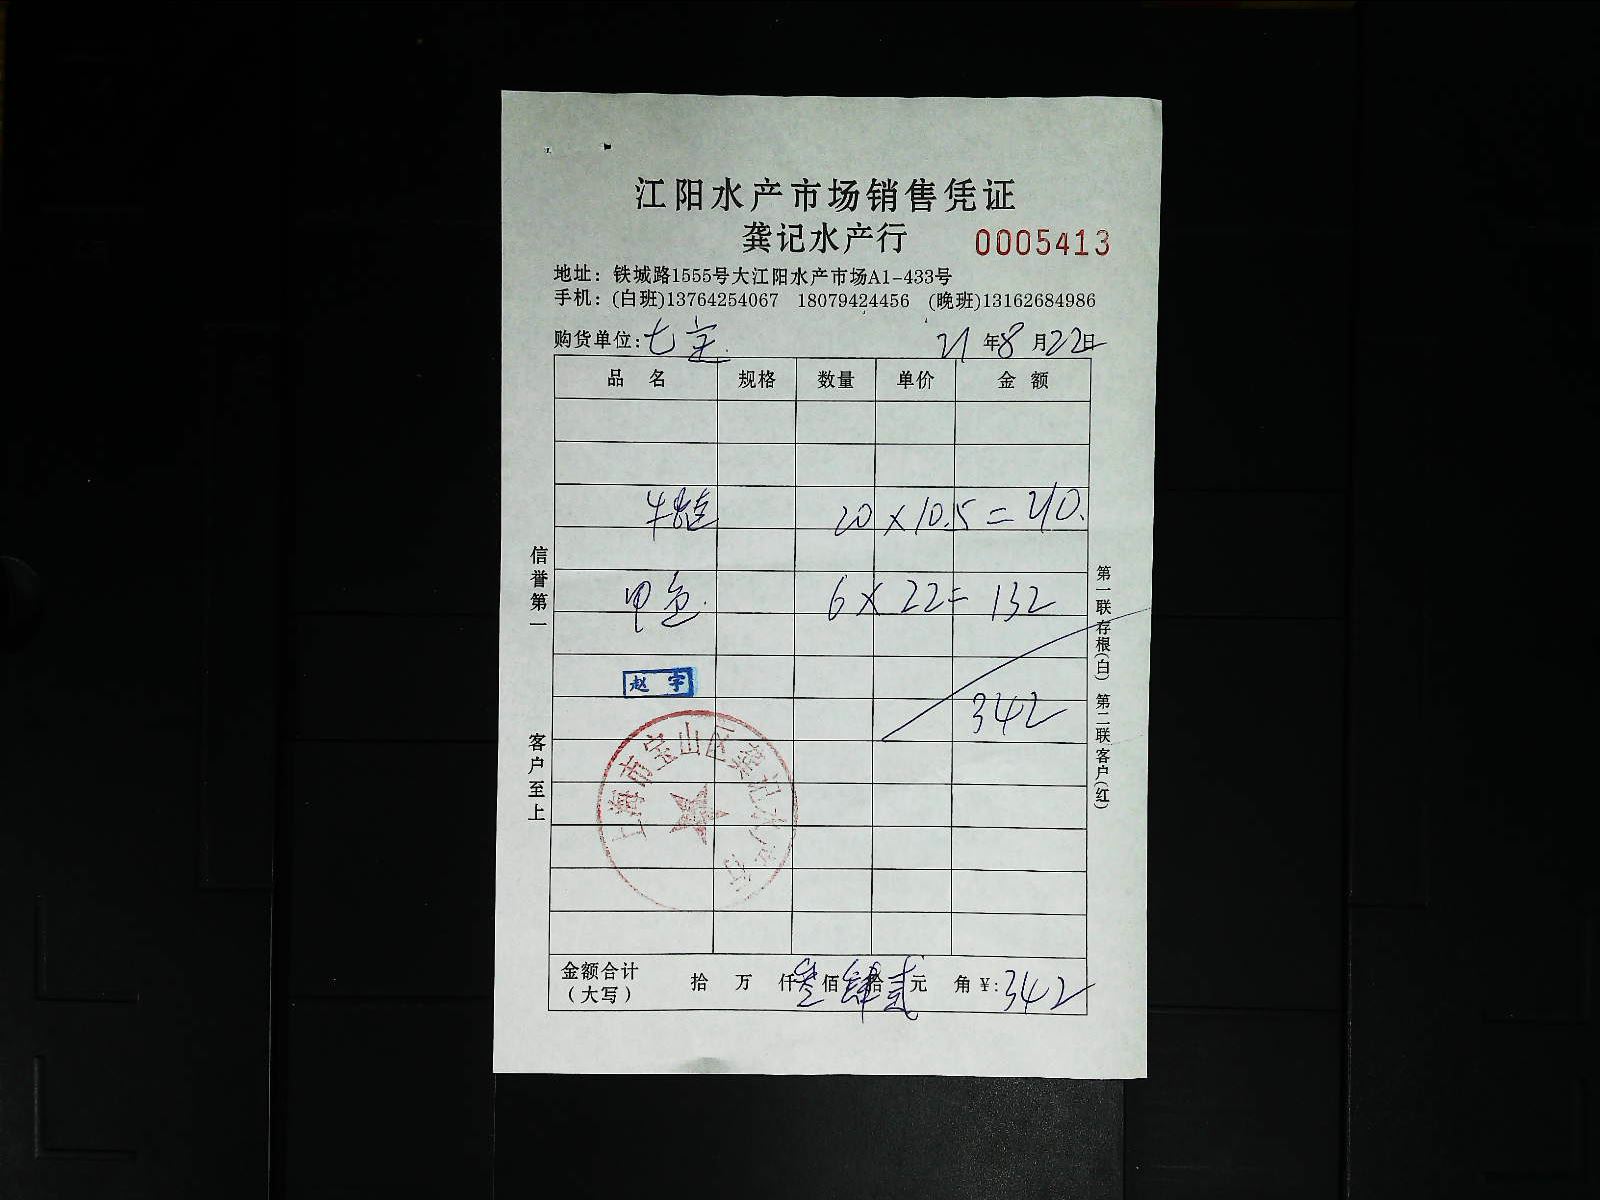 江阳水产市场销售凭证
龚记水产行 0005413
地址：铁城路1555号大江阳水产市场A1-433号
手机：(白班)13764254067 18079424456 (晚班)13162684986
购货单位:七宝 21年8月22日
品名 规格 数量 单价 金额
牛蛙 20×10.5=210.
甲鱼. 6×22=132
赵宇
342
上海市宝山区龚记水产行
信誉第一
客户至上
第一联存根(白) 第二联客户(红)
金额合计 拾 万 仟叁佰肆拾贰元 角 ¥:342
（大写）